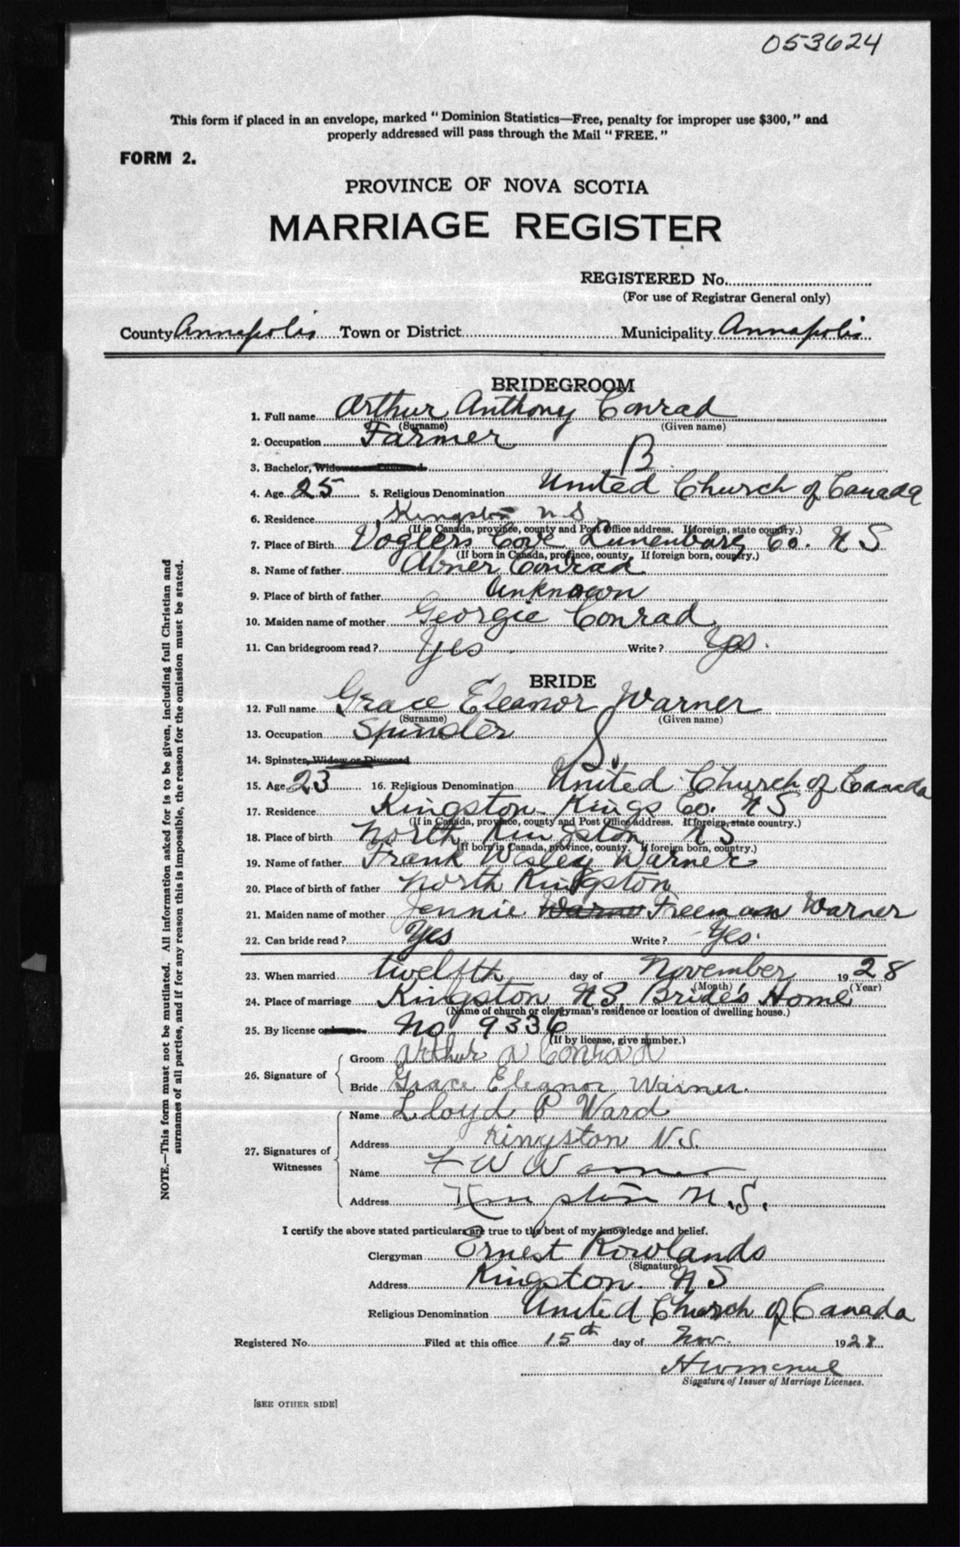 053624
This form if placed in an envelope, marked "Dominion Statistics—Free, penalty for improper use $300," and
properly addressed will pass through the Mail "FREE."
FORM 2.
PROVINCE OF NOVA SCOTIA
MARRIAGE REGISTER
REGISTERED No.
(For use of Registrar General only)
County Annapolis Town or District Municipality Annapolis
BRIDEGROOM
1. Full name Arthur Anthony Conrad
(Surname) (Given name)
2. Occupation Farmer
3. Bachelor, B
4. Age 25 5. Religious Denomination United Church of Canada
6. Residence Kingston N S
(If in Canada, province, county and Post Office address. If foreign, state country.)
7. Place of Birth Voglers Cove Lunenburg Co. N S
(If born in Canada, province, county. If foreign born, country.)
8. Name of father Abner Conrad
9. Place of birth of father Unknown
10. Maiden name of mother Georgie Conrad
11. Can bridegroom read? Yes Write? Yes.
BRIDE
12. Full name Grace Eleanor Warner
(Surname) (Given name)
13. Occupation Spinster
14. Spinster, Widow or Divorced S.
15. Age 23 16. Religious Denomination United Church of Canada
17. Residence Kingston Kings Co. N S
(If in Canada, province, county and Post Office address. If foreign, state country.)
18. Place of birth North Kingston N S
(If born in Canada, province, county. If foreign born, country.)
19. Name of father Frank Wesley Warner
20. Place of birth of father North Kingston
21. Maiden name of mother Jennie Freeman Warner
22. Can bride read? Yes Write? Yes.
23. When married twelfth day of November 1928
(Month) (Year)
24. Place of marriage Kingston NS. Bride's Home
(Name of church or clergyman's residence or location of dwelling house.)
25. By license No 9336
(If by license, give number.)
26. Signature of
Groom Arthur A Conrad
Bride Grace Eleanor Warner.
27. Signatures of Witnesses
Name Lloyd P Ward
Address Kingston N.S.
Name F W Warner
Address Kingston N.S.
I certify the above stated particulars are true to the best of my knowledge and belief.
Clergyman Ernest Rowlands
(Signature)
Address Kingston. N S
Religious Denomination United Church of Canada
Registered No. Filed at this office 15th day of Nov. 1928
Signature of Issuer of Marriage Licenses.
[SEE OTHER SIDE]
NOTE.—This form must not be mutilated. All information asked for is to be given, including full Christian and
surnames of all parties, and if for any reason this is impossible, the reason for the omission must be stated.